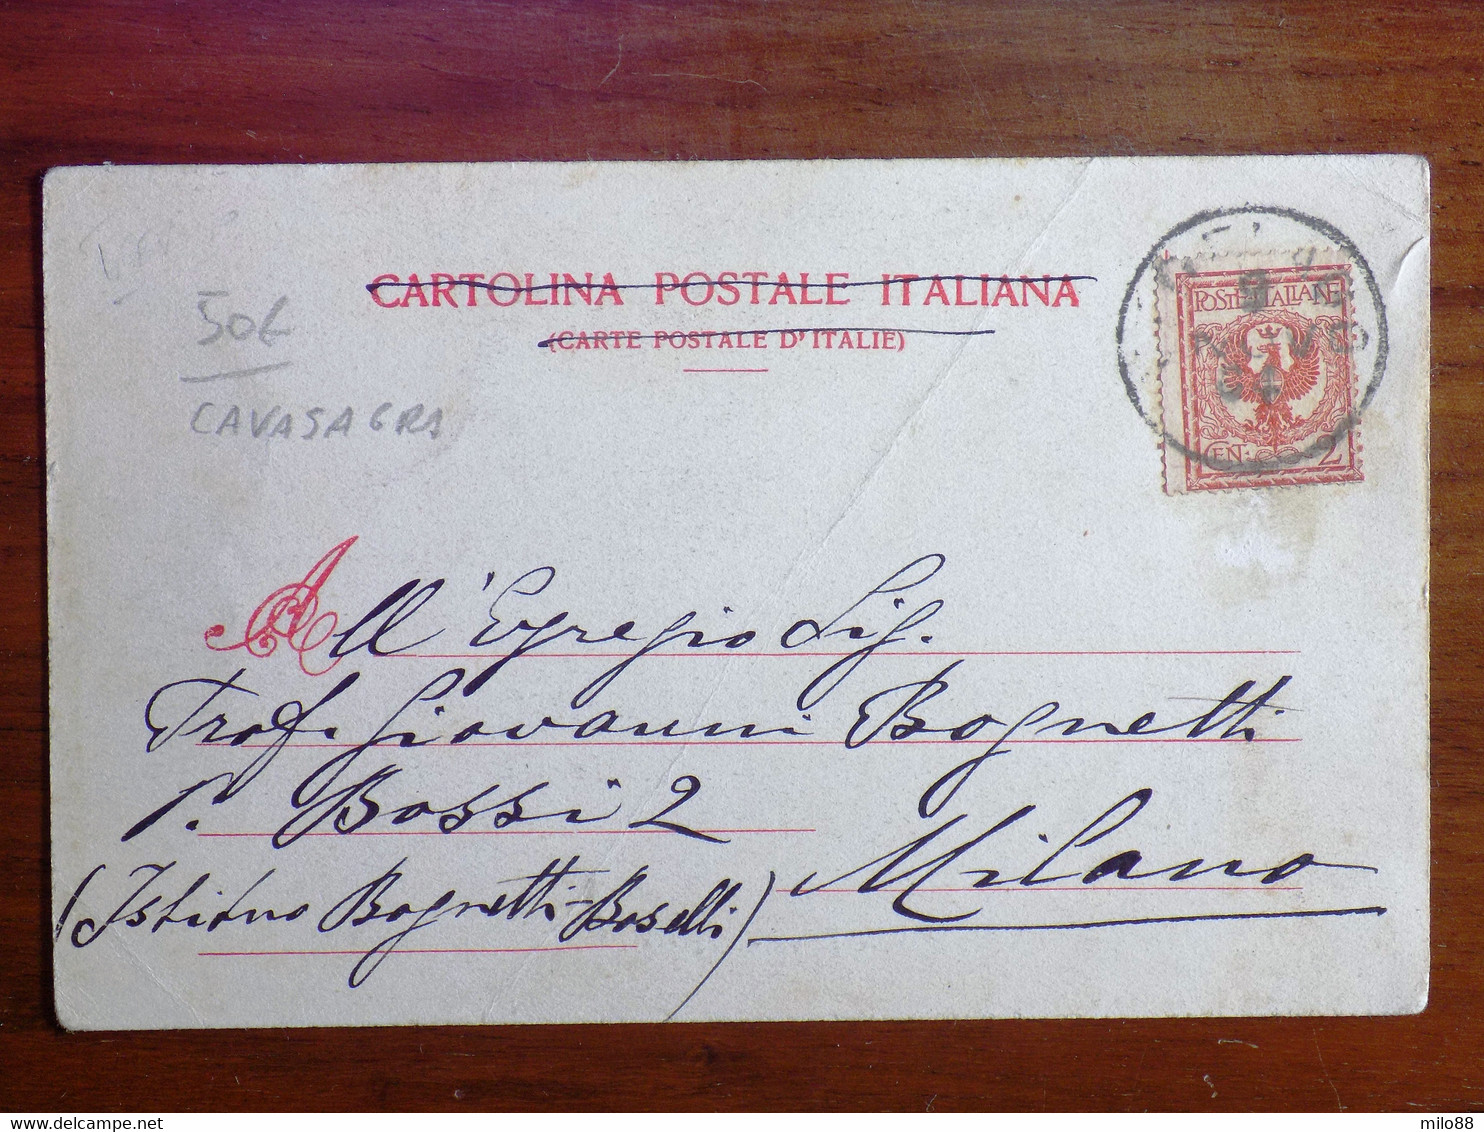 CARTOLINA POSTALE ITALIANA
(CARTE POSTALE D'ITALIE)
50€
CAVASAGRA
POSTE ITALIANE
CEN. 2
All'Egregio Sig.
Prof. Giovanni Bognetti
P. Bossi 2
Milano
(Istituto Bognetti-Boselli)
milo88